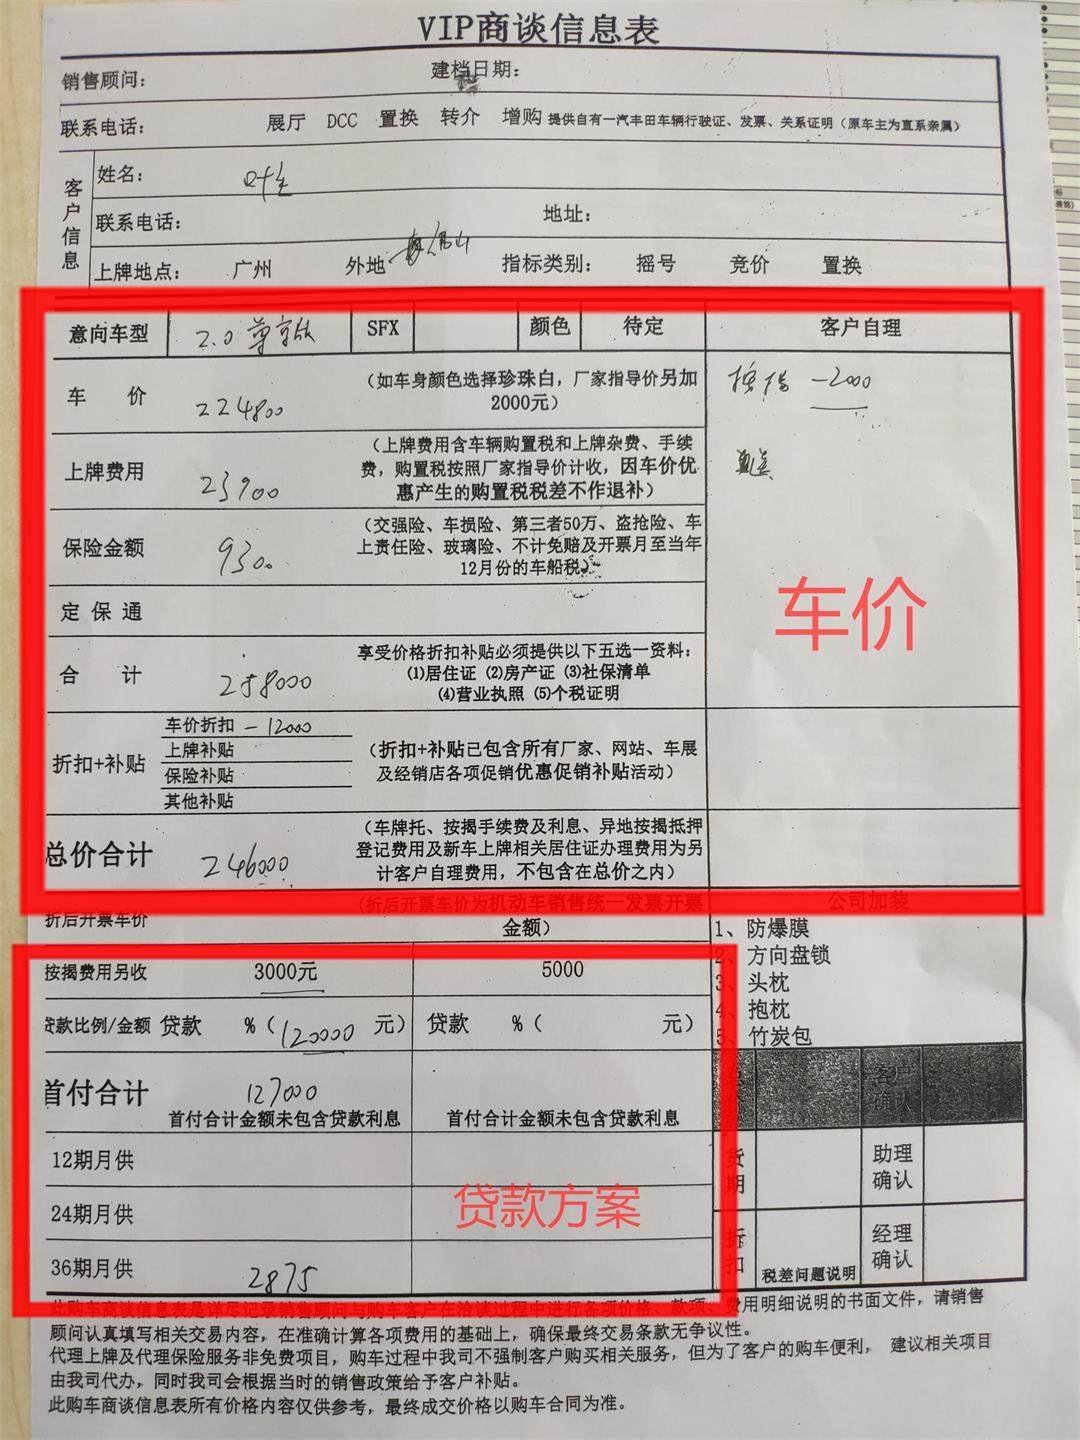 VIP商谈信息表
销售顾问: 建档日期:
联系电话: 展厅 DCC 置换 转介 增购 提供自有一汽丰田车辆行驶证、发票、关系证明（原车主为直系亲属）
客户信息
姓名: 叶生
联系电话: 地址:
上牌地点: 广州 外地 佛山 指标类别: 摇号 竞价 置换
意向车型 2.0 尊享版 SFX 颜色 待定 客户自理
车 价 224800 （如车身颜色选择珍珠白，厂家指导价另加
2000元）
-2000
上牌费用 23900 （上牌费用含车辆购置税和上牌杂费、手续
费，购置税按照厂家指导价计收，因车价优
惠产生的购置税税差不作退补）
保险金额 9300 （交强险、车损险、第三者50万、盗抢险、车
上责任险、玻璃险、不计免赔及开票月至当年
12月份的车船税）
车价
定 保 通
合 计 258000 享受价格折扣补贴必须提供以下五选一资料:
(1)居住证 (2)房产证 (3)社保清单
(4)营业执照 (5)个税证明
折扣+补贴
车价折扣 -12000
上牌补贴
保险补贴
其他补贴
（折扣+补贴已包含所有厂家、网站、车展
及经销店各项促销优惠促销补贴活动）
总价合计 246000 （车牌托、按揭手续费及利息、异地按揭抵押
登记费用及新车上牌相关居住证办理费用为另
计客户自理费用，不包含在总价之内）
折后开票车价 （折后开票车价为机动车销售统一发票开票
金额）
公司加装
1、防爆膜
2、方向盘锁
3、头枕
4、抱枕
5、竹炭包
按揭费用另收 3000元 5000
贷款比例/金额 贷款 %（120000 元） 贷款 %（ 元）
首付合计 127000
首付合计金额未包含贷款利息 首付合计金额未包含贷款利息
客户
确认
12期月供
24期月供
36期月供 2875
贷款方案
货期
助理
确认
折扣
税差问题说明
经理
确认
此购车商谈信息表是详尽记录销售顾问与购车客户在洽谈过程中进行各项价格、款项、费用明细说明的书面文件，请销售
顾问认真填写相关交易内容，在准确计算各项费用的基础上，确保最终交易条款无争议性。
代理上牌及代理保险服务非免费项目，购车过程中我司不强制客户购买相关服务，但为了客户的购车便利， 建议相关项目
由我司代办，同时我司会根据当时的销售政策给予客户补贴。
此购车商谈信息表所有价格内容仅供参考，最终成交价格以购车合同为准。